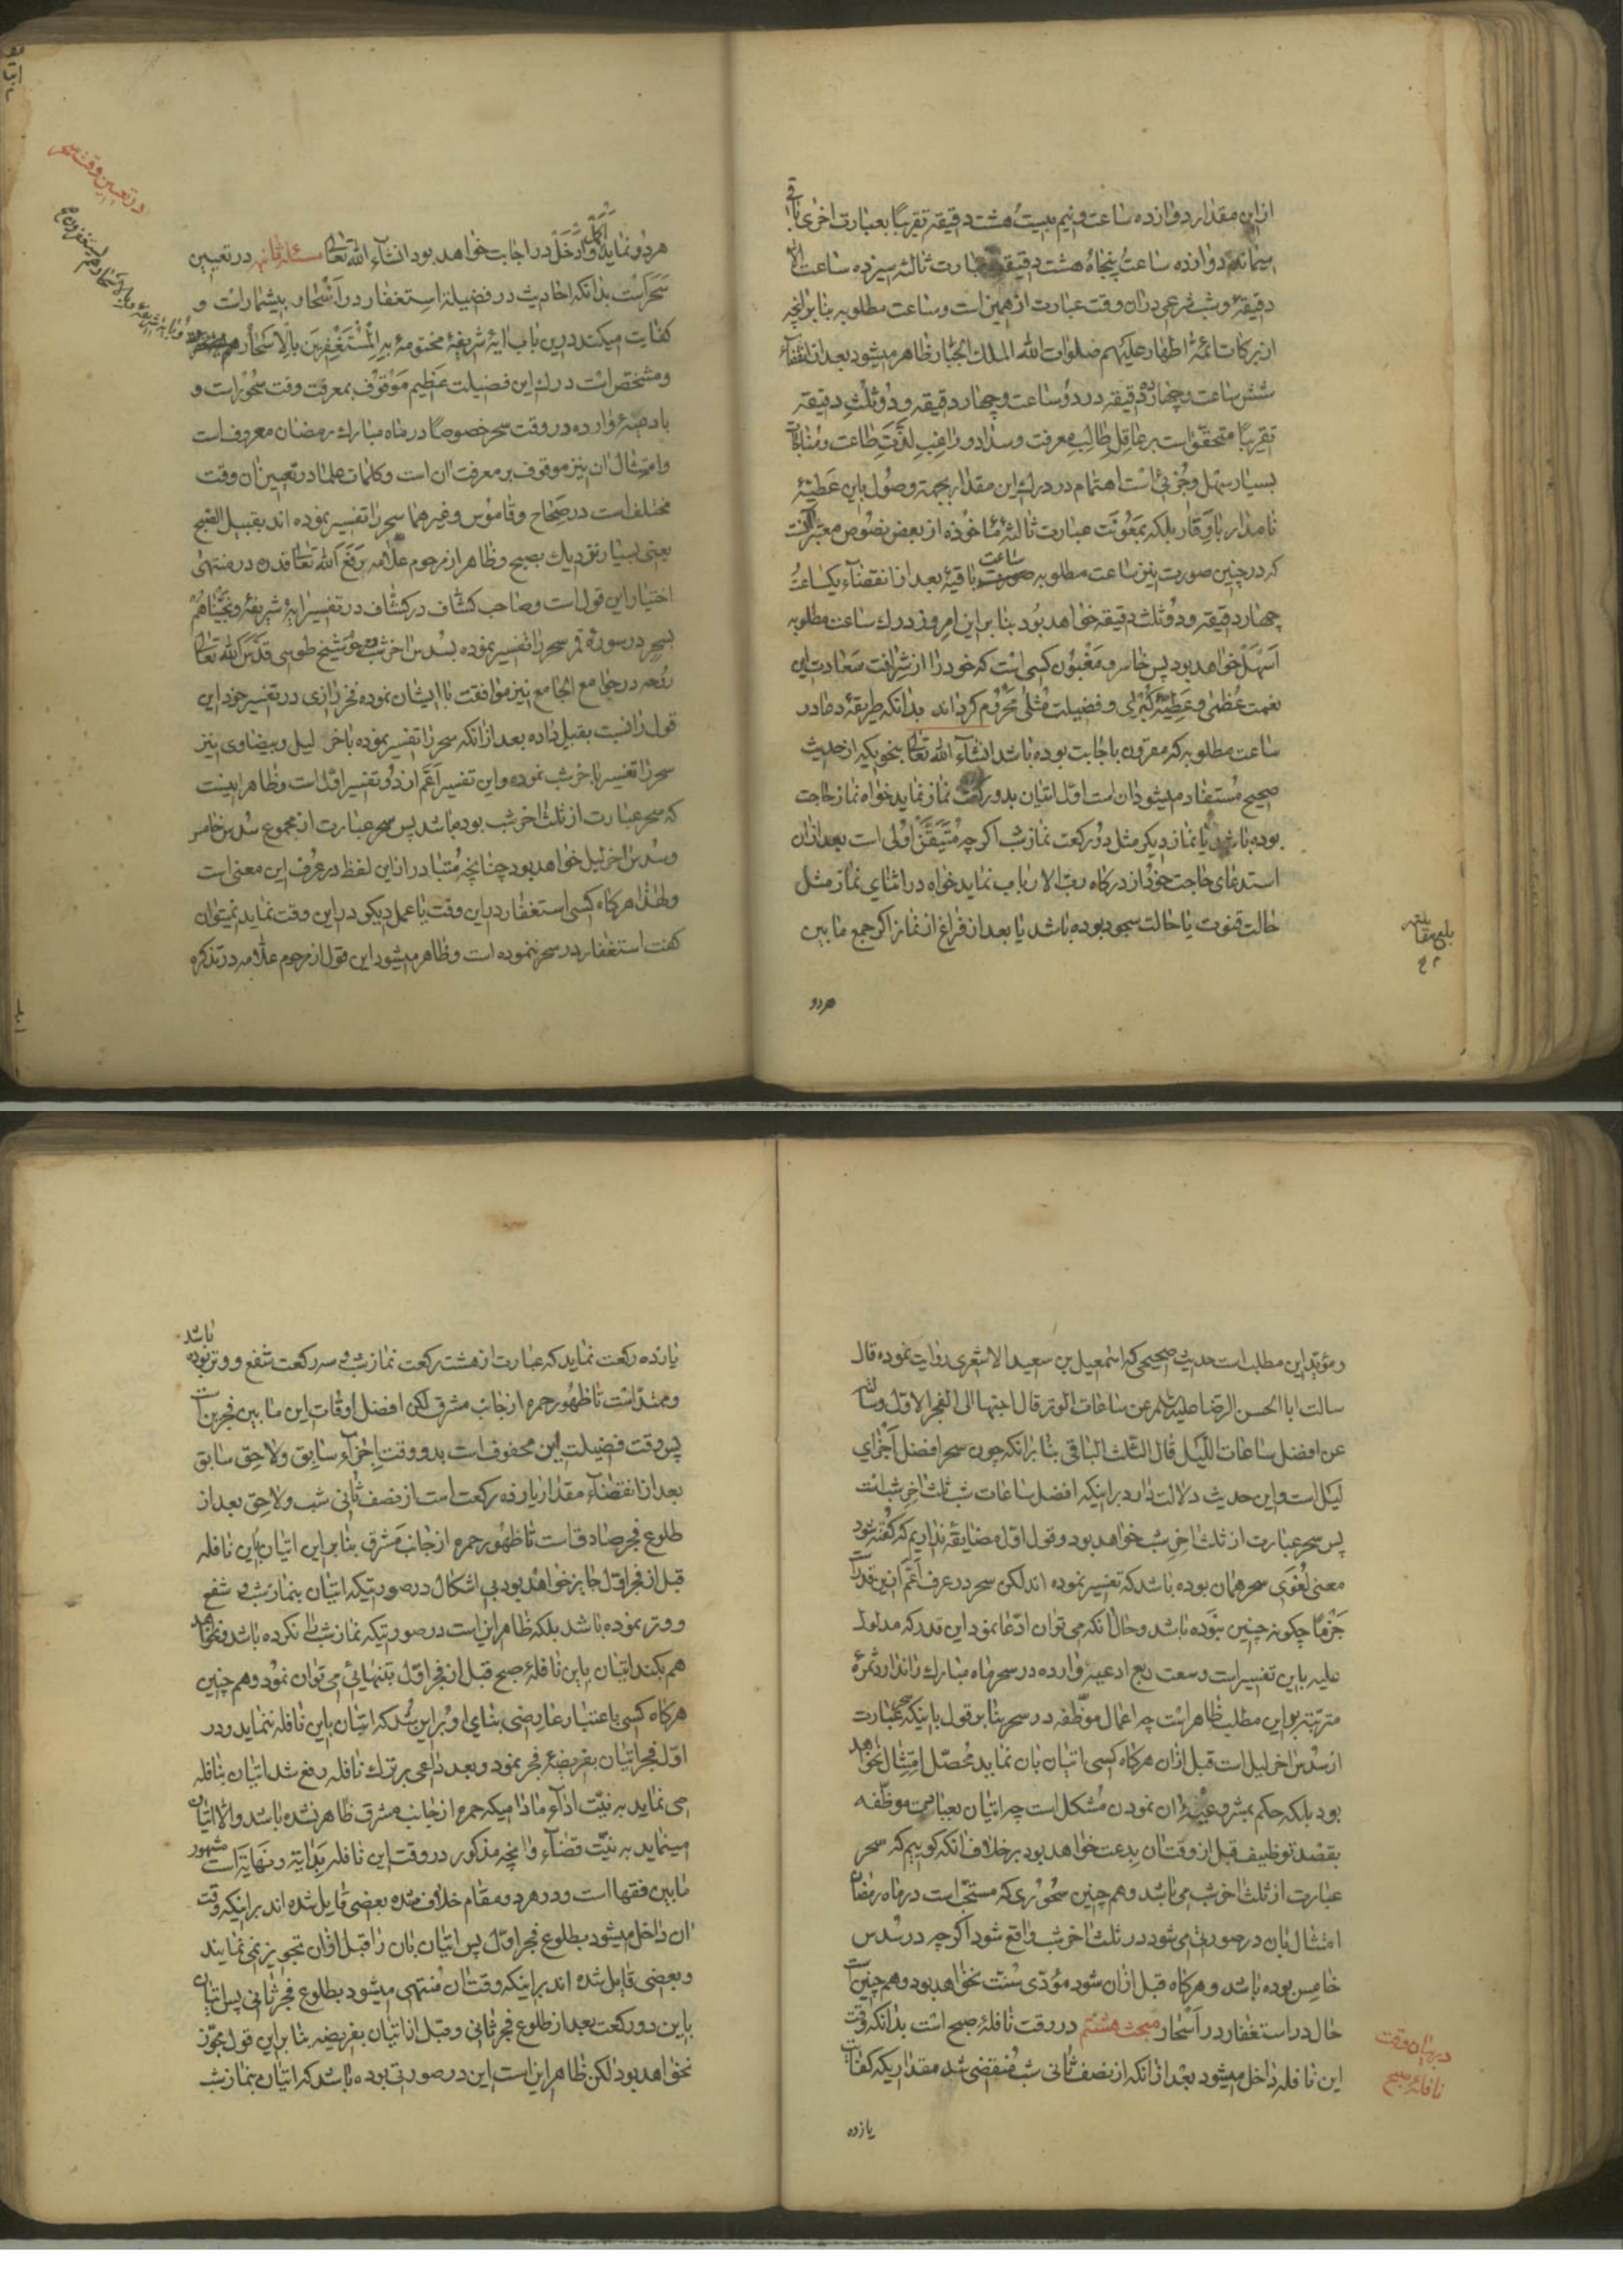 ازین مقدار دوازده ساعت و نیم بیست و هشت دقیقه تقریبا بعبارت اخری باقی
میماند دوازده ساعت و پنجاه و هشت دقیقه و بعبارت ثالثه سیزده ساعت الا دو
دقیقهٔ و شب شرعی در ان وقت عبارت از همین است و ساعت مطلوبه بنا بر انچه
از برکات ائمهٔ اطهار علیهم صلوات الله الملک الجبار ظاهر میشود بعد از انقضآء
شش ساعت و چهارده دقیقه در دو ساعت و چهار دقیقه و دو ثلث دقیقه
تقریبا متحقق است بر عاقل طالب معرفت و سداد و راغب لذت طاعت و مناجات
بسیار سهل و جزئی است اهتمام در درک این مقدار بجهة وصول باین عطیهٔ
نامدار با وقار بلکه بمعونت عبارت ثالثهٔ ماخوذه از بعض نصوص معتبره
که در چنین صورت نیز ساعت مطلوبه ساعت باقیهٔ بعد از انقضآء یکساعت و
چهار دقیقه و دو ثلث دقیقه خواهد بود بنا بر این امروز درک ساعت مطلوبه
اسهل خواهد بود پس خاسر و مغبون کسی است که خود را از شرافت سعادت این
نعمت عظمی و عطیهٔ کبری و فضیلت مثلی محروم گرداند بدانکه طریقهٔ دعا در
ساعت مطلوبه که مقرون باجابت بوده باشد انشآء الله تعالی بنحویکه از حدیث
صحیح مستفاد میشود ان است اول اتیان بدو رکعت نماز نماید خواه نماز حاجت
بوده باشد یا نماز دیگر مثل دو رکعت نماز شب اگر چه متیقن اولی است بعد از ان
استدعای حاجت خود از درگاه رب الارباب نماید خواه در اثنای نماز مثل
حالت قنوت یا حالت سجود بوده باشد یا بعد از فراغ از نماز اگر جمع ما بین
بلغ مقابله
هردو
هردو نماید اکمل و ادخل در اجابت خواهد بود انشآء الله تعالی مسئلهٔ ثانیه در تعیین
در تعیین وقت سحر
سحر است بدانکه احادیث در فضیلة استغفار در اسحار بیشمار است و
کفایت میکند درین باب ایهٔ شریفهٔ مختومهٔ به المستغفرین بالاسحار
و ایهٔ شریفهٔ و بالاسحار هم یستغفرون
و مشخص است درک این فضیلت عظیم موقوف بمعرفت وقت سحور است و
بادعیهٔ وارده در وقت سحر خصوصا در ماه مبارک رمضان معروف است
و امتثال ان نیز موقوف بر معرفت ان است و کلمات علما در تعیین ان وقت
مختلف است در صحاح و قاموس و غیر هما سحر را تفسیر نموده اند بقبیل الصبح
یعنی بسیار نزدیک بصبح و ظاهر از مرحوم علامه رفع الله تعالی قدره در منتهی
اختیار این قول است و صاحب کشاف در کشاف در تفسیر ایهٔ شریفهٔ و نجیناهم
بسحر در سورهٔ قمر سحر را تفسیر نموده بسدس اخر شب و مرحوم شیخ طوسی قدس الله تعالی
روحه در جامع الجامع نیز موافقت با ایشان نموده فخر رازی در تفسیر خود این
قول را نسبت بقیل داده بعد از انکه سحر را تفسیر نموده باخر لیل و بیضاوی نیز
سحر را تفسیر باخر شب نموده و این تفسیر اعم از دو تفسیر اول است و ظاهر اینست
که سحر عبارت از ثلث اخر شب بوده باشد پس سحر عبارت از مجموع سدس خامس
و سدس اخر لیل خواهد بود چنانچه متبادر از این لفظ در عرف این معنی است
و لهذا هرگاه کسی استغفار در این وقت یا عمل دیگر در این وقت نماید نمیتوان
گفت استغفار در سحر ننموده است و ظاهر میشود این قول از مرحوم علامه در تذکره
و مؤید این مطلب است حدیث صحیحی که اسمعیل بن سعید الاشعری روایت نموده قال
سالت ابا الحسن الرضا علیه السلم عن ساعات الوتر قال احبها الی الفجر الاول و سالته
عن افضل ساعات اللیل قال الثلث الباقی بنا بر انکه چون سحر افضل اجزای
لیل است و این حدیث دلالت دارد بر اینکه افضل ساعات شب ثلث اخر شب است
پس سحر عبارت از ثلث اخر شب خواهد بود و قول اول مضایقه نداریم که گفته شود
معنی لغوی سحر همان بوده باشد که تفسیر نموده اند لکن سحر در عرف اعم از این قدر است
جزما چگونه چنین نبوده باشد و حال انکه می توان ادعا نمود این قدر که مدلول
علیه باین تفسیر است وسعت ربع ادعیهٔ وارده در سحر ماه مبارک را ندارد ثمرهٔ
مترتبه بر این مطلب ظاهر است چه اعمال موظفه در سحر بنا بر قول باینکه سحر عبارت
از سدس اخر لیل است قبل از ان هرگاه کسی اتیان بان نماید محصل امتثال نخواهد
بود بلکه حکم بمشروعیهٔ ان نمودن مشکل است چه اتیان بعبادت موظفه
بقصد توظیف قبل از وقت ان بدعت خواهد بود بر خلاف انکه گوییم که سحر
عبارت از ثلث اخر شب می باشد و هم چنین سحوری که مستحب است در ماه رمضان
امتثال بان در صورتی می شود در ثلث اخر شب واقع شود اگر چه در سدس
خامس بوده باشد و هرگاه قبل از ان شود مؤدی سنت نخواهد بود و هم چنین است
حال در استغفار در اسحار مبحث هشتم در وقت نافلهٔ صبح است بدانکه وقت
در بیان وقت نافلهٔ صبح
این نافله داخل میشود بعد از انکه از نصف ثانی شب منقضی شد مقداریکه کفایت
یازده
یازده رکعت نماید که عبارت از هشت رکعت نماز شب و سه رکعت شفع و وتر بوده باشد
و ممتد است تا ظهور حمره از جانب مشرق لکن افضل اوقات این ما بین فجرین است
پس وقت فضیلت این محفوف است بدو وقت اجزآء سابق و لاحق سابق
بعد از انقضآء مقدار یازده رکعت است از نصف ثانی شب و لاحق بعد از
طلوع فجر صادق است تا ظهور حمره از جانب مشرق بنا بر این اتیان باین نافله
قبل از فجر اول جایز خواهد بود بی اشکال در صورتیکه اتیان بنماز شب و شفع
و وتر نموده باشد بلکه ظاهر این است در صورتیکه نماز شب را نکرده باشد و نخواهد
هم بکند اتیان باین نافلهٔ صبح قبل از فجر اول بتنهائی می توان نمود و هم چنین
هرگاه کسی باعتبار عارضی بنای او بر این شد که اتیان باین نافله ننماید و در
اول فجر اتیان بفریضهٔ فجر نمود و بعد داعی بر ترک نافله رفع شد اتیان بنافله
می نماید به نیت ادآء مادامیکه حمره از جانب مشرق ظاهر نشده باشد و الا اتیان
مینماید به نیت قضآء و انچه مذکور در وقت این نافله بدایة و نهایة است مشهور
ما بین فقها است و در هر دو مقام خلاف شده بعضی قایل شده اند بر اینکه وقت
ان داخل میشود بطلوع فجر اول پس اتیان بان را قبل از ان تجویز نمی نمایند
و بعضی قایل شده اند بر اینکه وقت ان منتهی میشود بطلوع فجر ثانی پس اتیان
باین دو رکعت بعد از طلوع فجر ثانی و قبل از اتیان بفریضه بنا بر این قول مجوز
نخواهد بود لکن ظاهر این است این در صورتی بوده باشد که اتیان بنماز شب